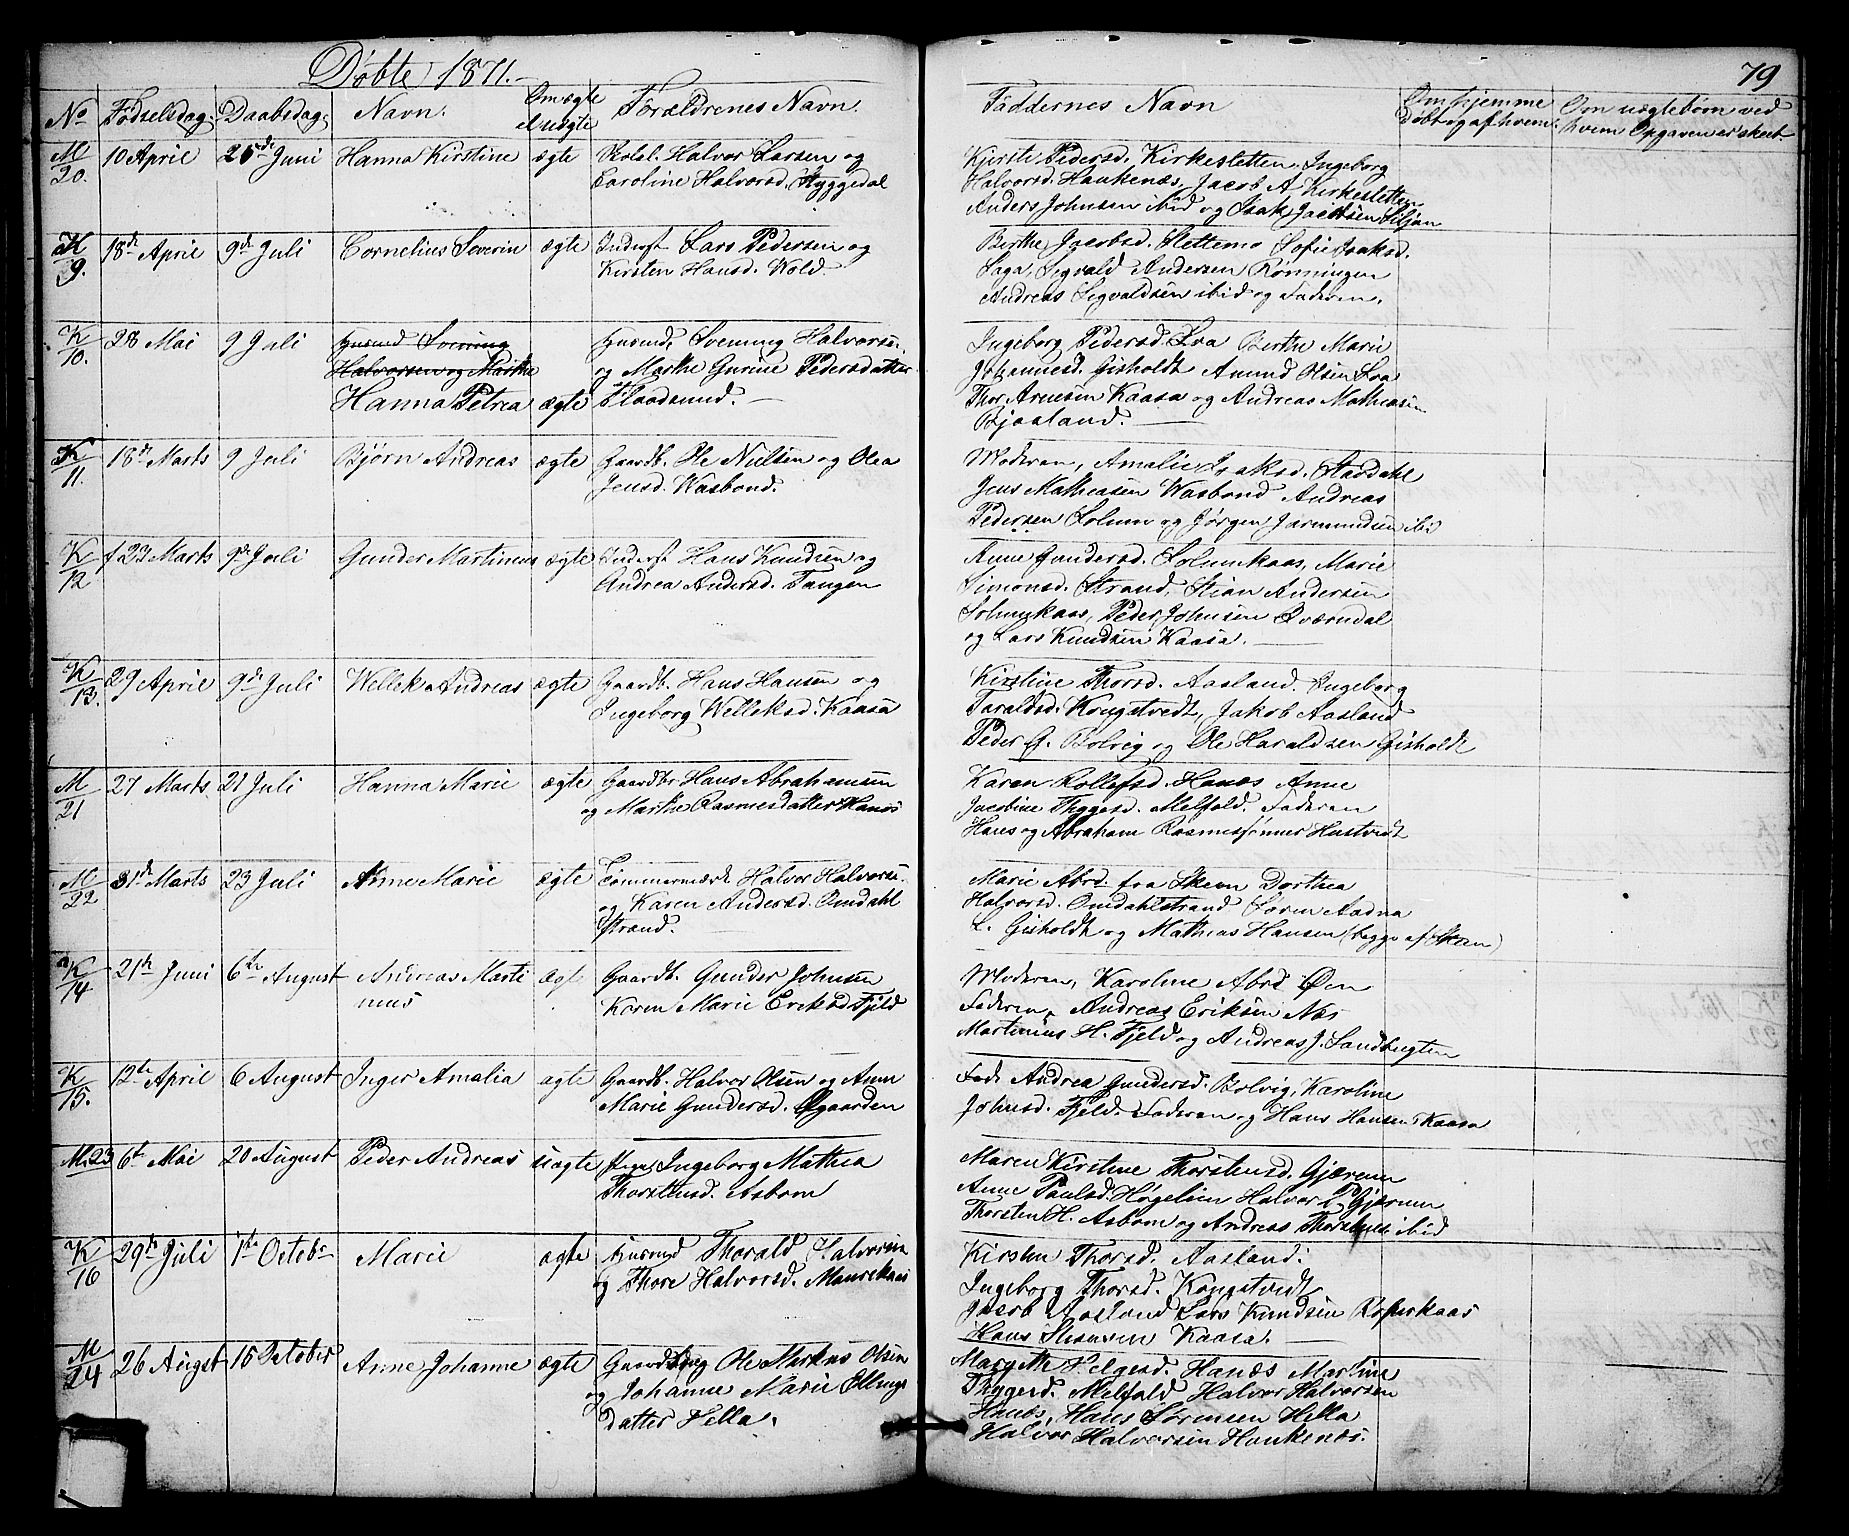 Døbte 1871.
79
No Fødselsdag. Daabsdag. Navn. Om ægte el. uægte Forældrenes Navn Faddernes Navn Om hjemme Døbt og af hvem. Om uægtebørn ved hvem Opgaven er skeet.
M 20. 10 April 25de Juni Hanna Kirstine ægte Halvor Larsen og
Caroline Halvorsd. Hyggedal
Kjersti Pedersd. Kirkesletten. Ingeborg
Halvorsd. Haukenæs, Jacob A. Kirkesletten
Anders Johnsen ibid og Isak Jacobsen Siljan
K 9. 18de April 9de Juli Cornelius Severin ægte Inderst Lars Pedersen og
Kirsten Hansd. Wold.
Berthe Jacobsd. Slettemo Sofie Isaksd.
Saga, Segvald Andersen Rønningen
Andreas Segvaldsen ibid og Faderen.
K 10. 28 Mai 9 Juli Husmd Svening
Halvorsen og Marthe
Hanna Petrea ægte
Husmd. Svening Halvors.
og Marthe Gurine Pedersdatter
Flaadsund.
Ingeborg Pedersd. Lva Berthe Marie
Johannesd. Gisholdt Amund Olsen Lva
Thor Arnesen Kaasa og Andreas Mathiasen
Bjaaland.
K 11. 18de Marts 9 Juli Bjørn Andreas ægte Gaardb. Ole Nielsen og Olea
Jensd. Wasbond.
Moderen, Amalie Isaksd. Stavdahl
Jens Mathiasen Wasbond Andreas
Pedersen Solum og Jørgen Jormundsen ibid
K 12 23 Marts 9de Juli Gunder Martinus ægte Inderst Hans Knudsen og
Andrea Andersd. Tangen
Anne Gundersd. Solumkaas, Marie
Simonsd. Strand, Stian Andersen
Solumkaas, Peder Johnsen Qværndal
og Lars Knudsen Kaasa.
K 13. 29 April 9de Juli Wellek Andreas ægte Gaardb. Hans Hansen og
Ingeborg Welleksd. Kaasa
Kirstine Thorsd. Aasland. Ingeborg
Taraldsd. Kongstvedt, Jakob Aasland
Peder G. Bolvig og Ole Haraldsen Gisholdt
M 21 27 Marts 21 Juli Hanna Marie ægte Gaardbr. Hans Abrahamsen
og Marthe Rasmusdatter Hanæs
Karen Rollefsd. Hanæs Anne
Jacobine Thygesd. Melfald. Faderen
Hans og Abraham Rasmussønner Hustvedt
M 22 31de Marts 23 Juli Anne Marie ægte Tømmermd. Halvor Halvors.
og Karen Andersd. Omdahl
strand.
Marie Abrd. fra Skien Dorthea
Halvorsd. Omdahlstrand Søren Aadna
L. Gisholdt og Mathias Hansen (begge af Skien)
K 14 21de Juni 6te August Andreas Marti
nus Gaardb. Gunder Johnsen
Karen Marie Eriksd Fjeld
Moderen, Karoline Abrd Øen
Faderen, Andreas Eriksen Næs
Martinius H. Fjeld og Andreas J. Sandbugten
K 15. 12te April 6 August Inger Amalia ægte Gaardb. Halvor Olsen og Anne
Marie Gundersd. Øgaarden
Andrea Gundersd. Bolvig, Karoline
Johnsd. Fjeld. Faderen og Hans Hansen Kaasa
M. 23 6te Mai 20 August Peder Andreas uægte Pige Ingeborg Mathea
Thorstensd. Asbom
Maren Kirstine Thorstensd. Gjærum
Anne Paulsd. Høgelien Halvor Gjærum
Thorsten H. Asbom og Andreas Thorstensen ibid
K 16 29de Juli 1ste Octobr Marie ægte Husmd Thorald Halvorsen
og Thore Halvorsd. Maurekaas
Kirsten Thorsd. Aasland.
Ingeborg Thorsd. Kongstvedt
Jacob Aasland Lars Knudsen Roperkaas
Hans Stiansen Kaasa.
M 24 26 August 15 October Anne Johanne ægte Gaardbrug Ole Markus Olsen
og Johanne Marie Ellings
Datter Hella.
Margethe Helgesd. Hanæs Martine
Thygesd. Melfald Halvor Halvorsen
Hanæs, Hans Sørensen Hella
Halvor Halvorsen Haukenæs.